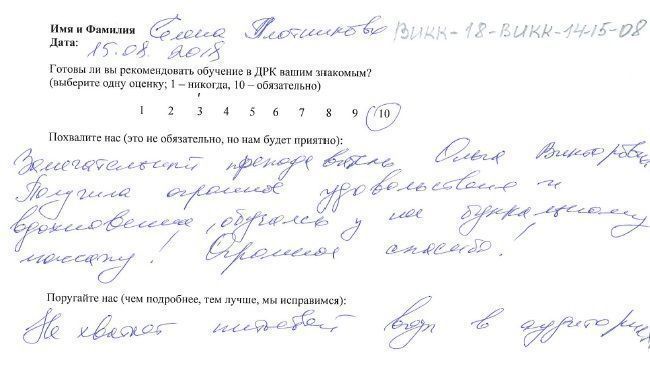 Имя и Фамилия Елена Плотникова ВИКК-18-ВИКК-14-15-08
Дата: 15.08.2018
Готовы ли вы рекомендовать обучение в ДРК вашим знакомым?
(выберите одну оценку; 1 – никогда, 10 – обязательно)
1 2 3 4 5 6 7 8 9 10
Похвалите нас (это не обязательно, но нам будет приятно):
Замечательный преподаватель Ольга Викторовна
Получила огромное удовольствие и
вдохновение, обучаясь у нее буккальному
массажу! Огромное спасибо!
Поругайте нас (чем подробнее, тем лучше, мы исправимся):
Не хватает питьевой воды в аудитории